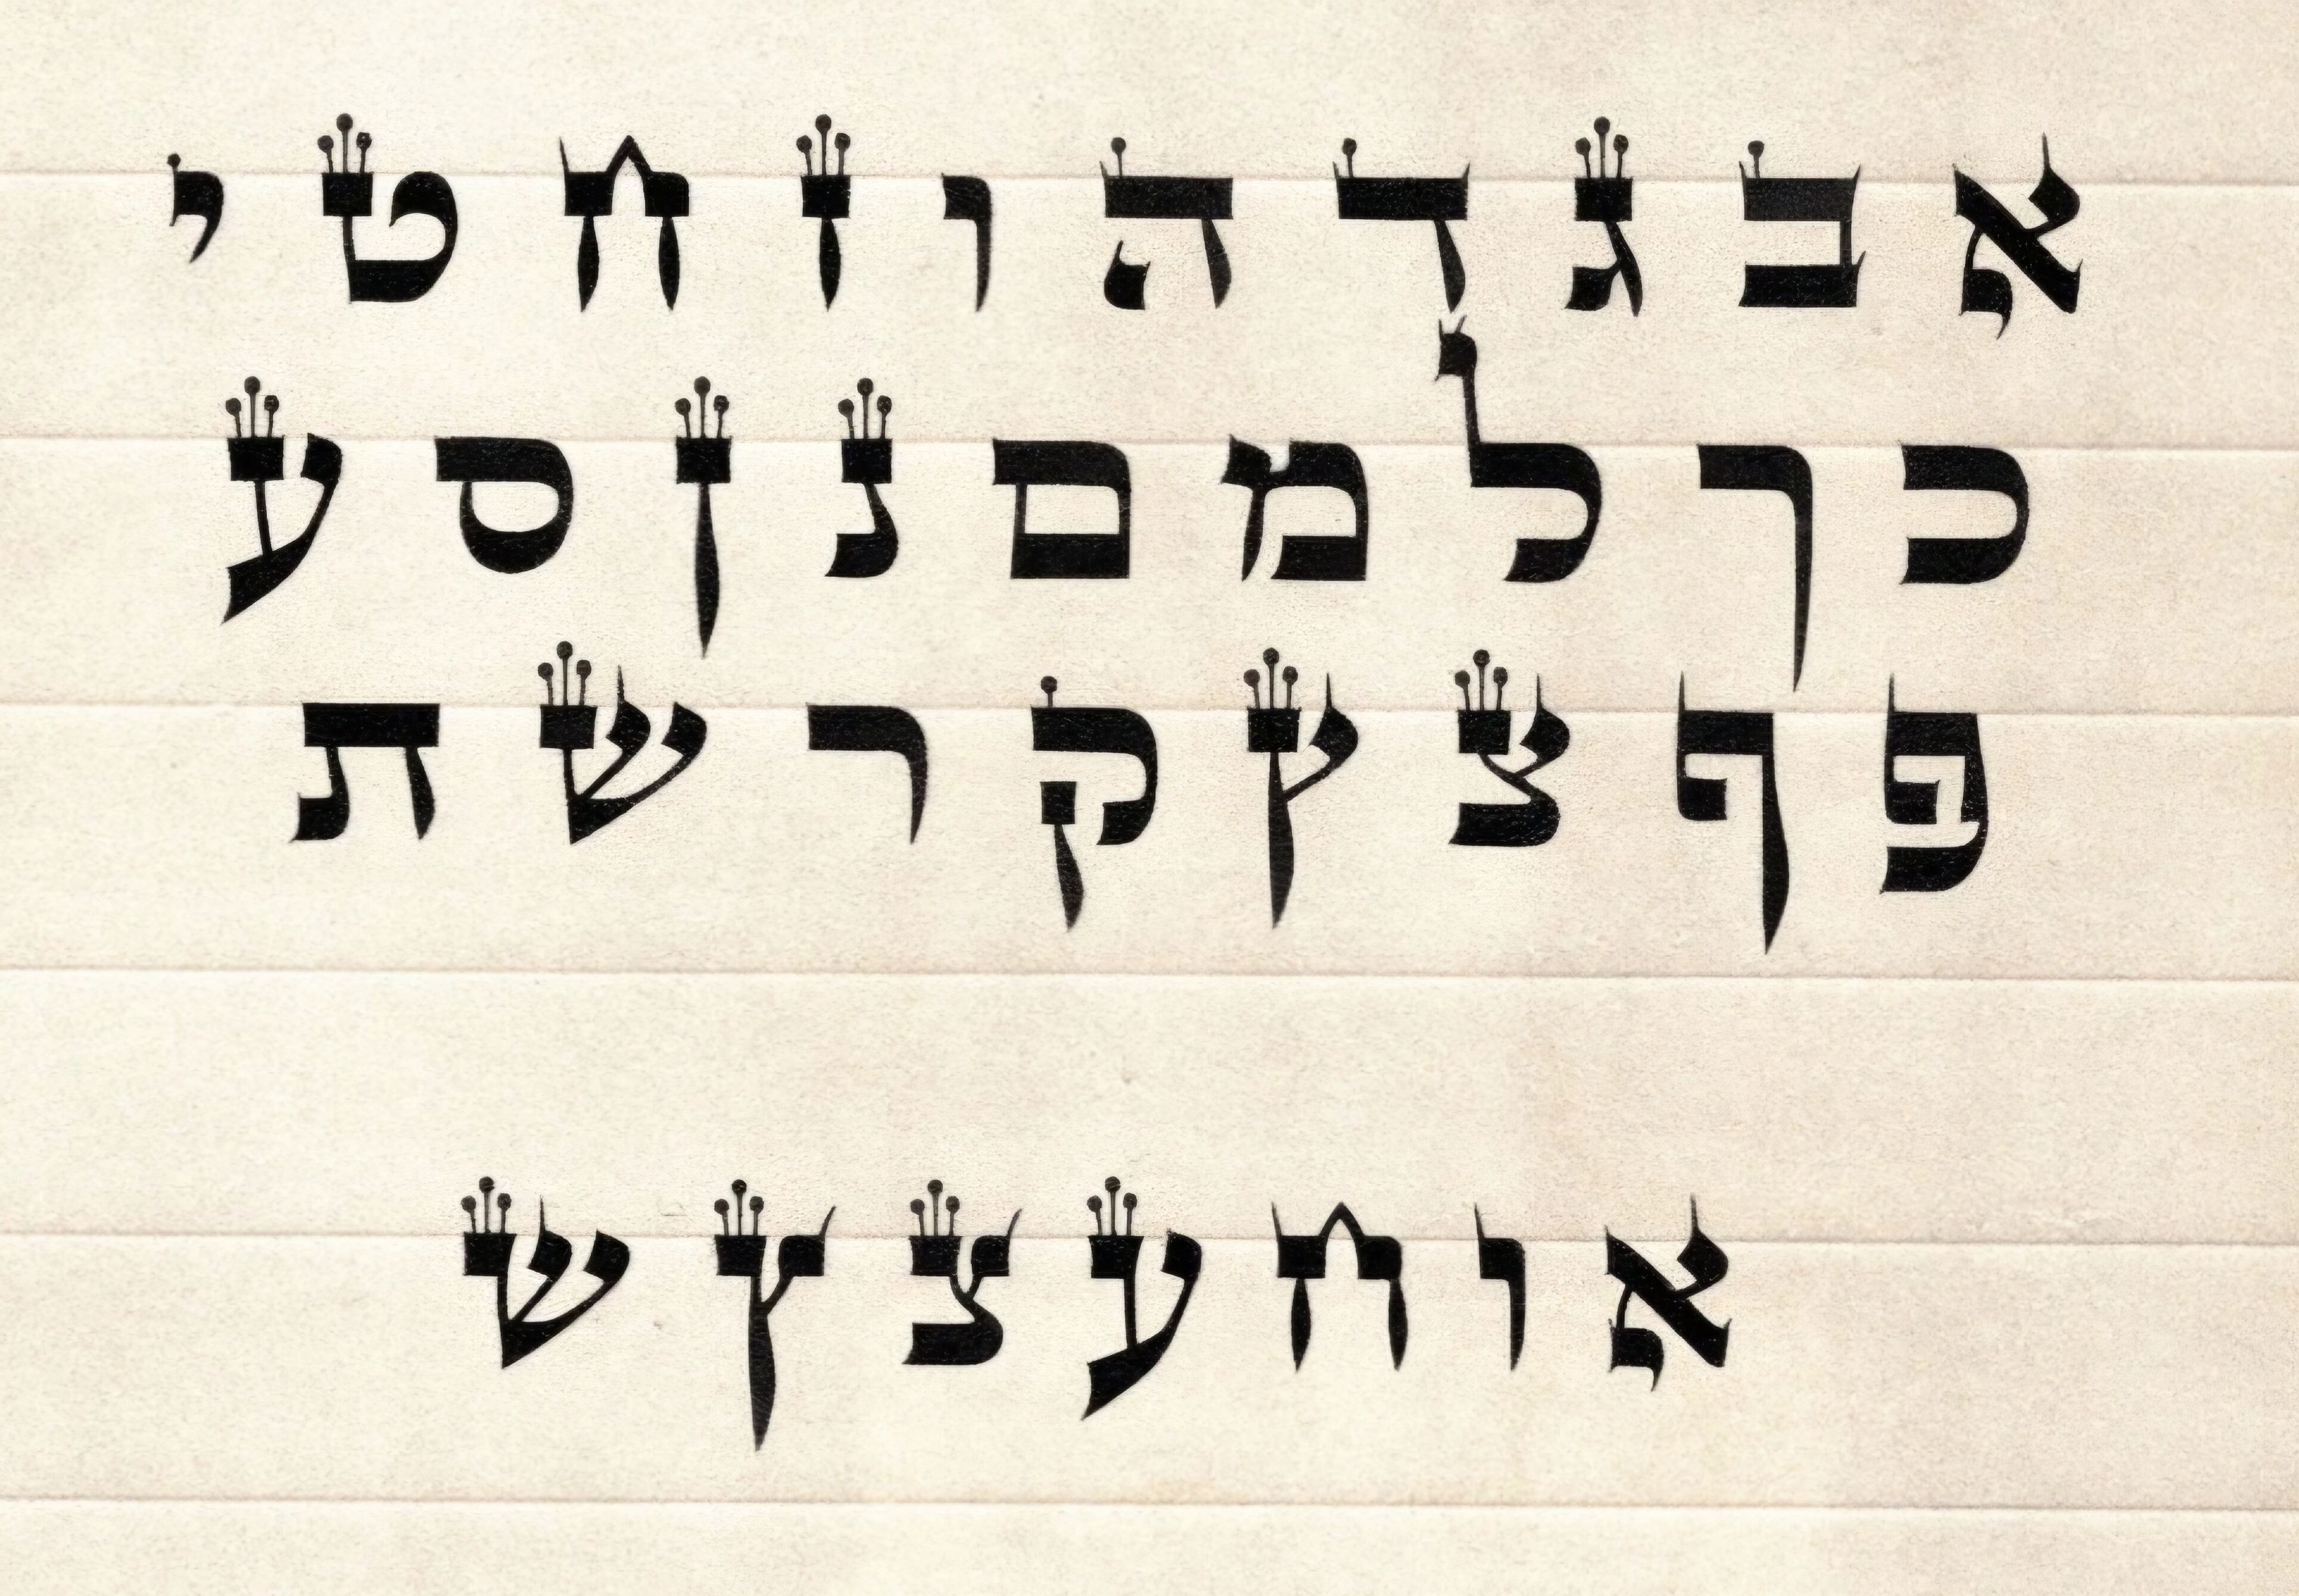 א ב ג ד ה ו ז ח ט י
כ ך ל מ ם נ ן ס ע
פ ף צ ץ ק ר ש ת
א ו ח ע צ ץ ש